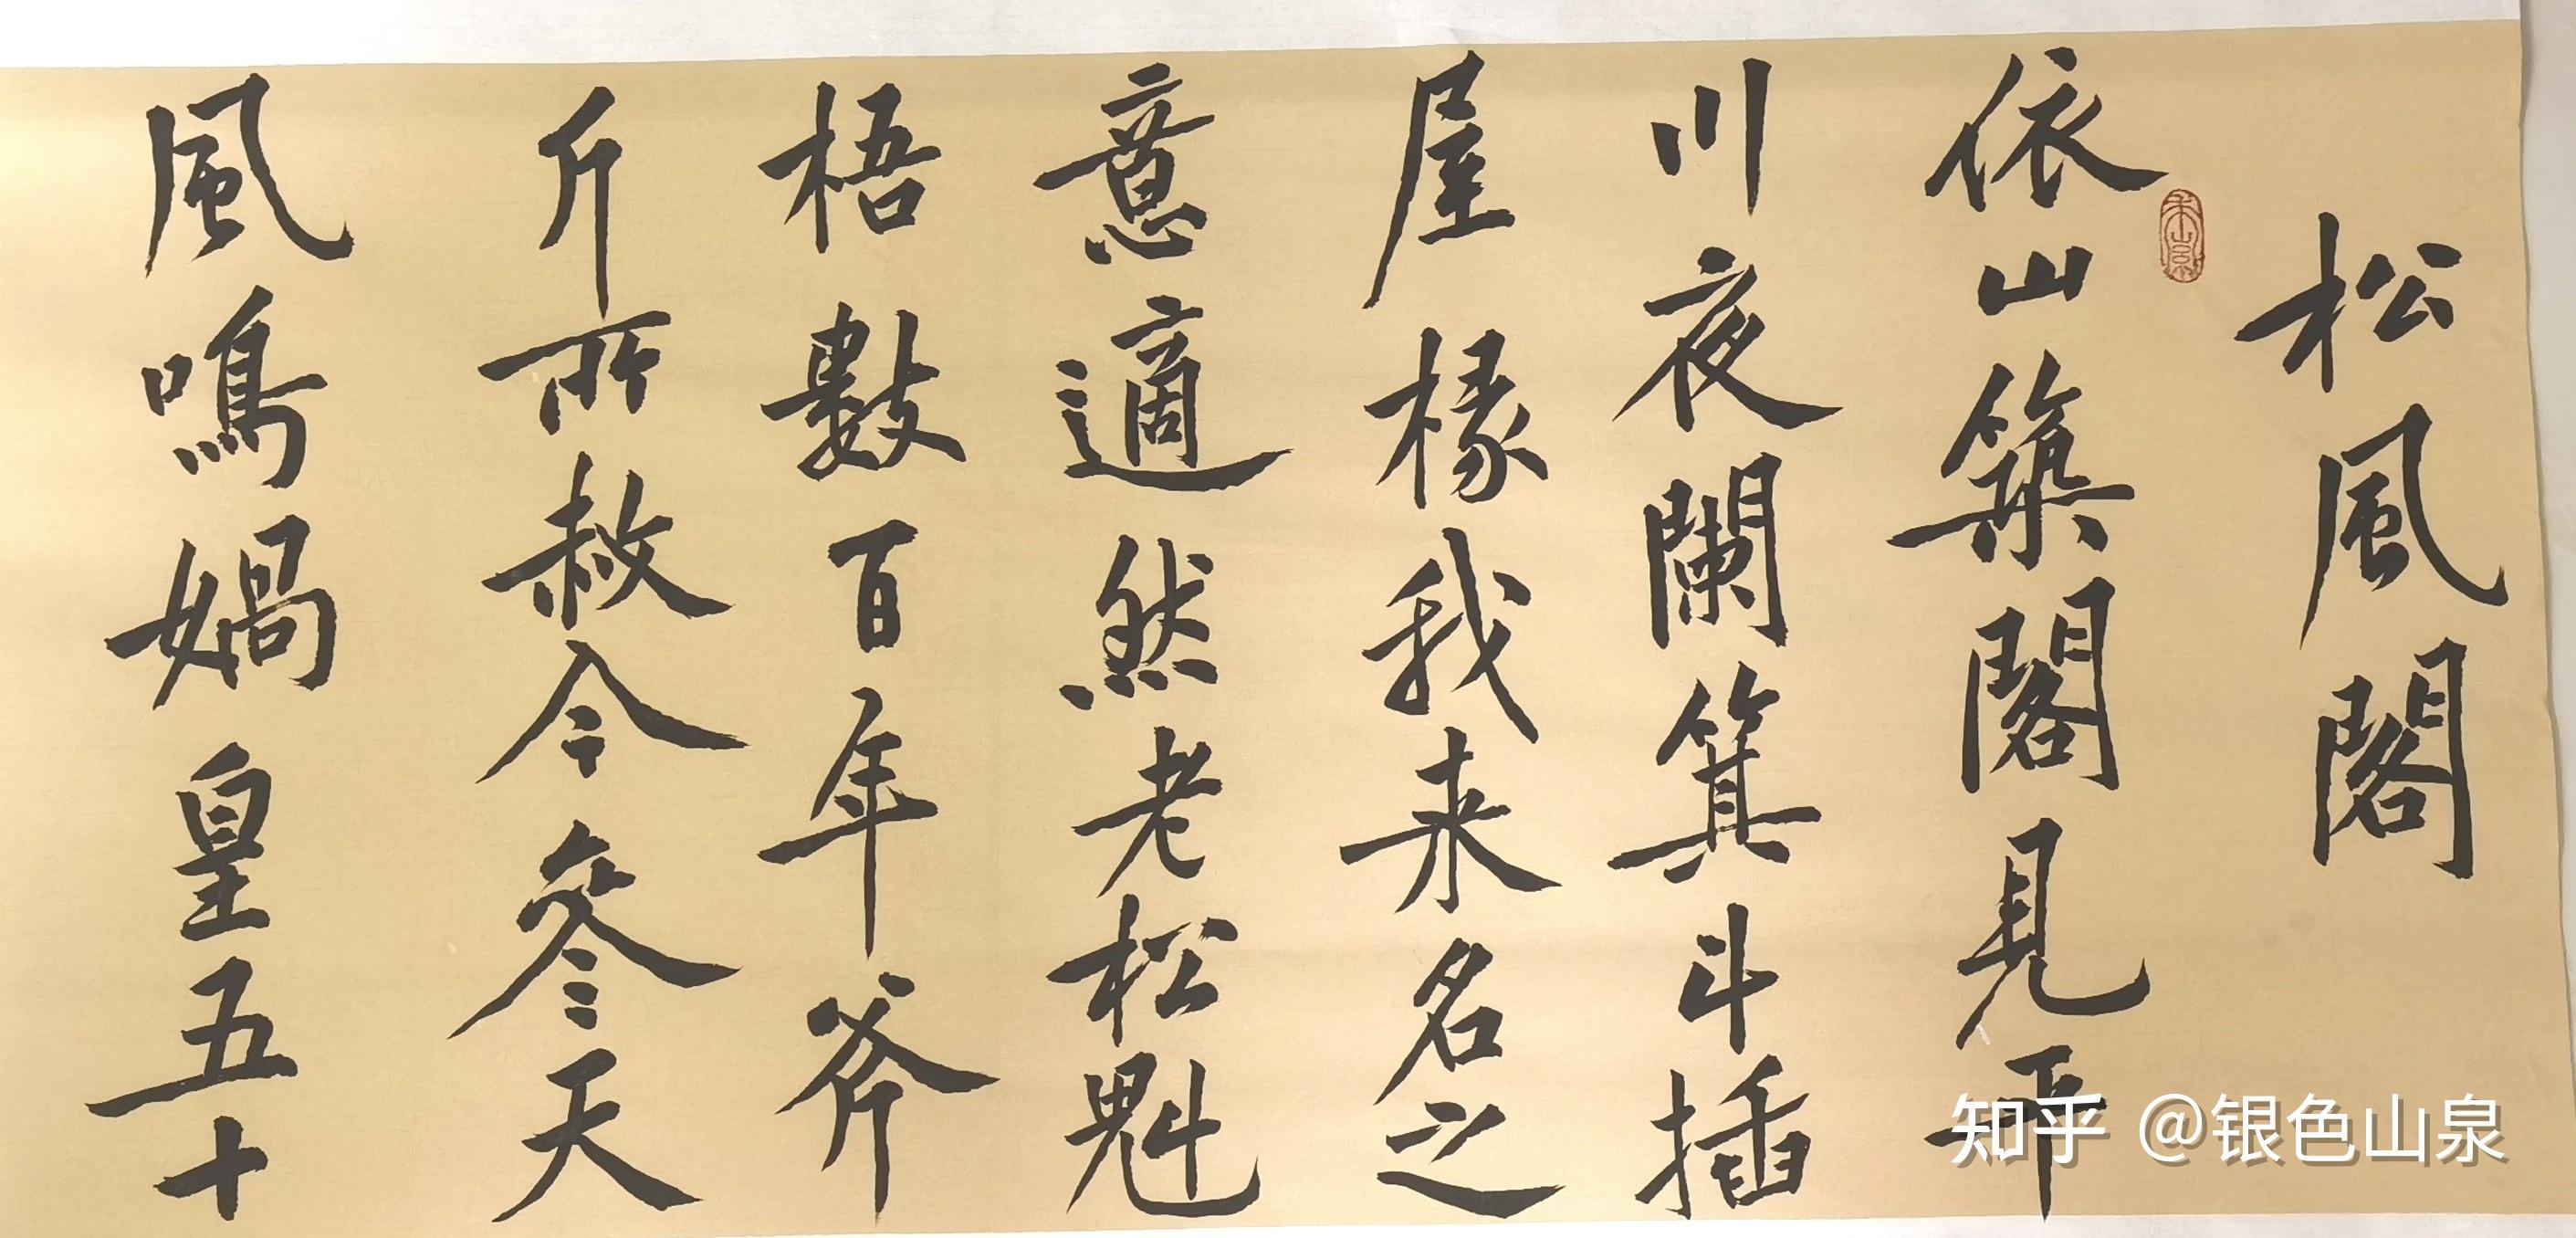 松風閣
依山築閣見平
川夜闌箕斗插
屋椽我来名之
意適然老松魁
梧數百年斧
斤所赦令參天
風鳴媧皇五十
知乎 @银色山泉